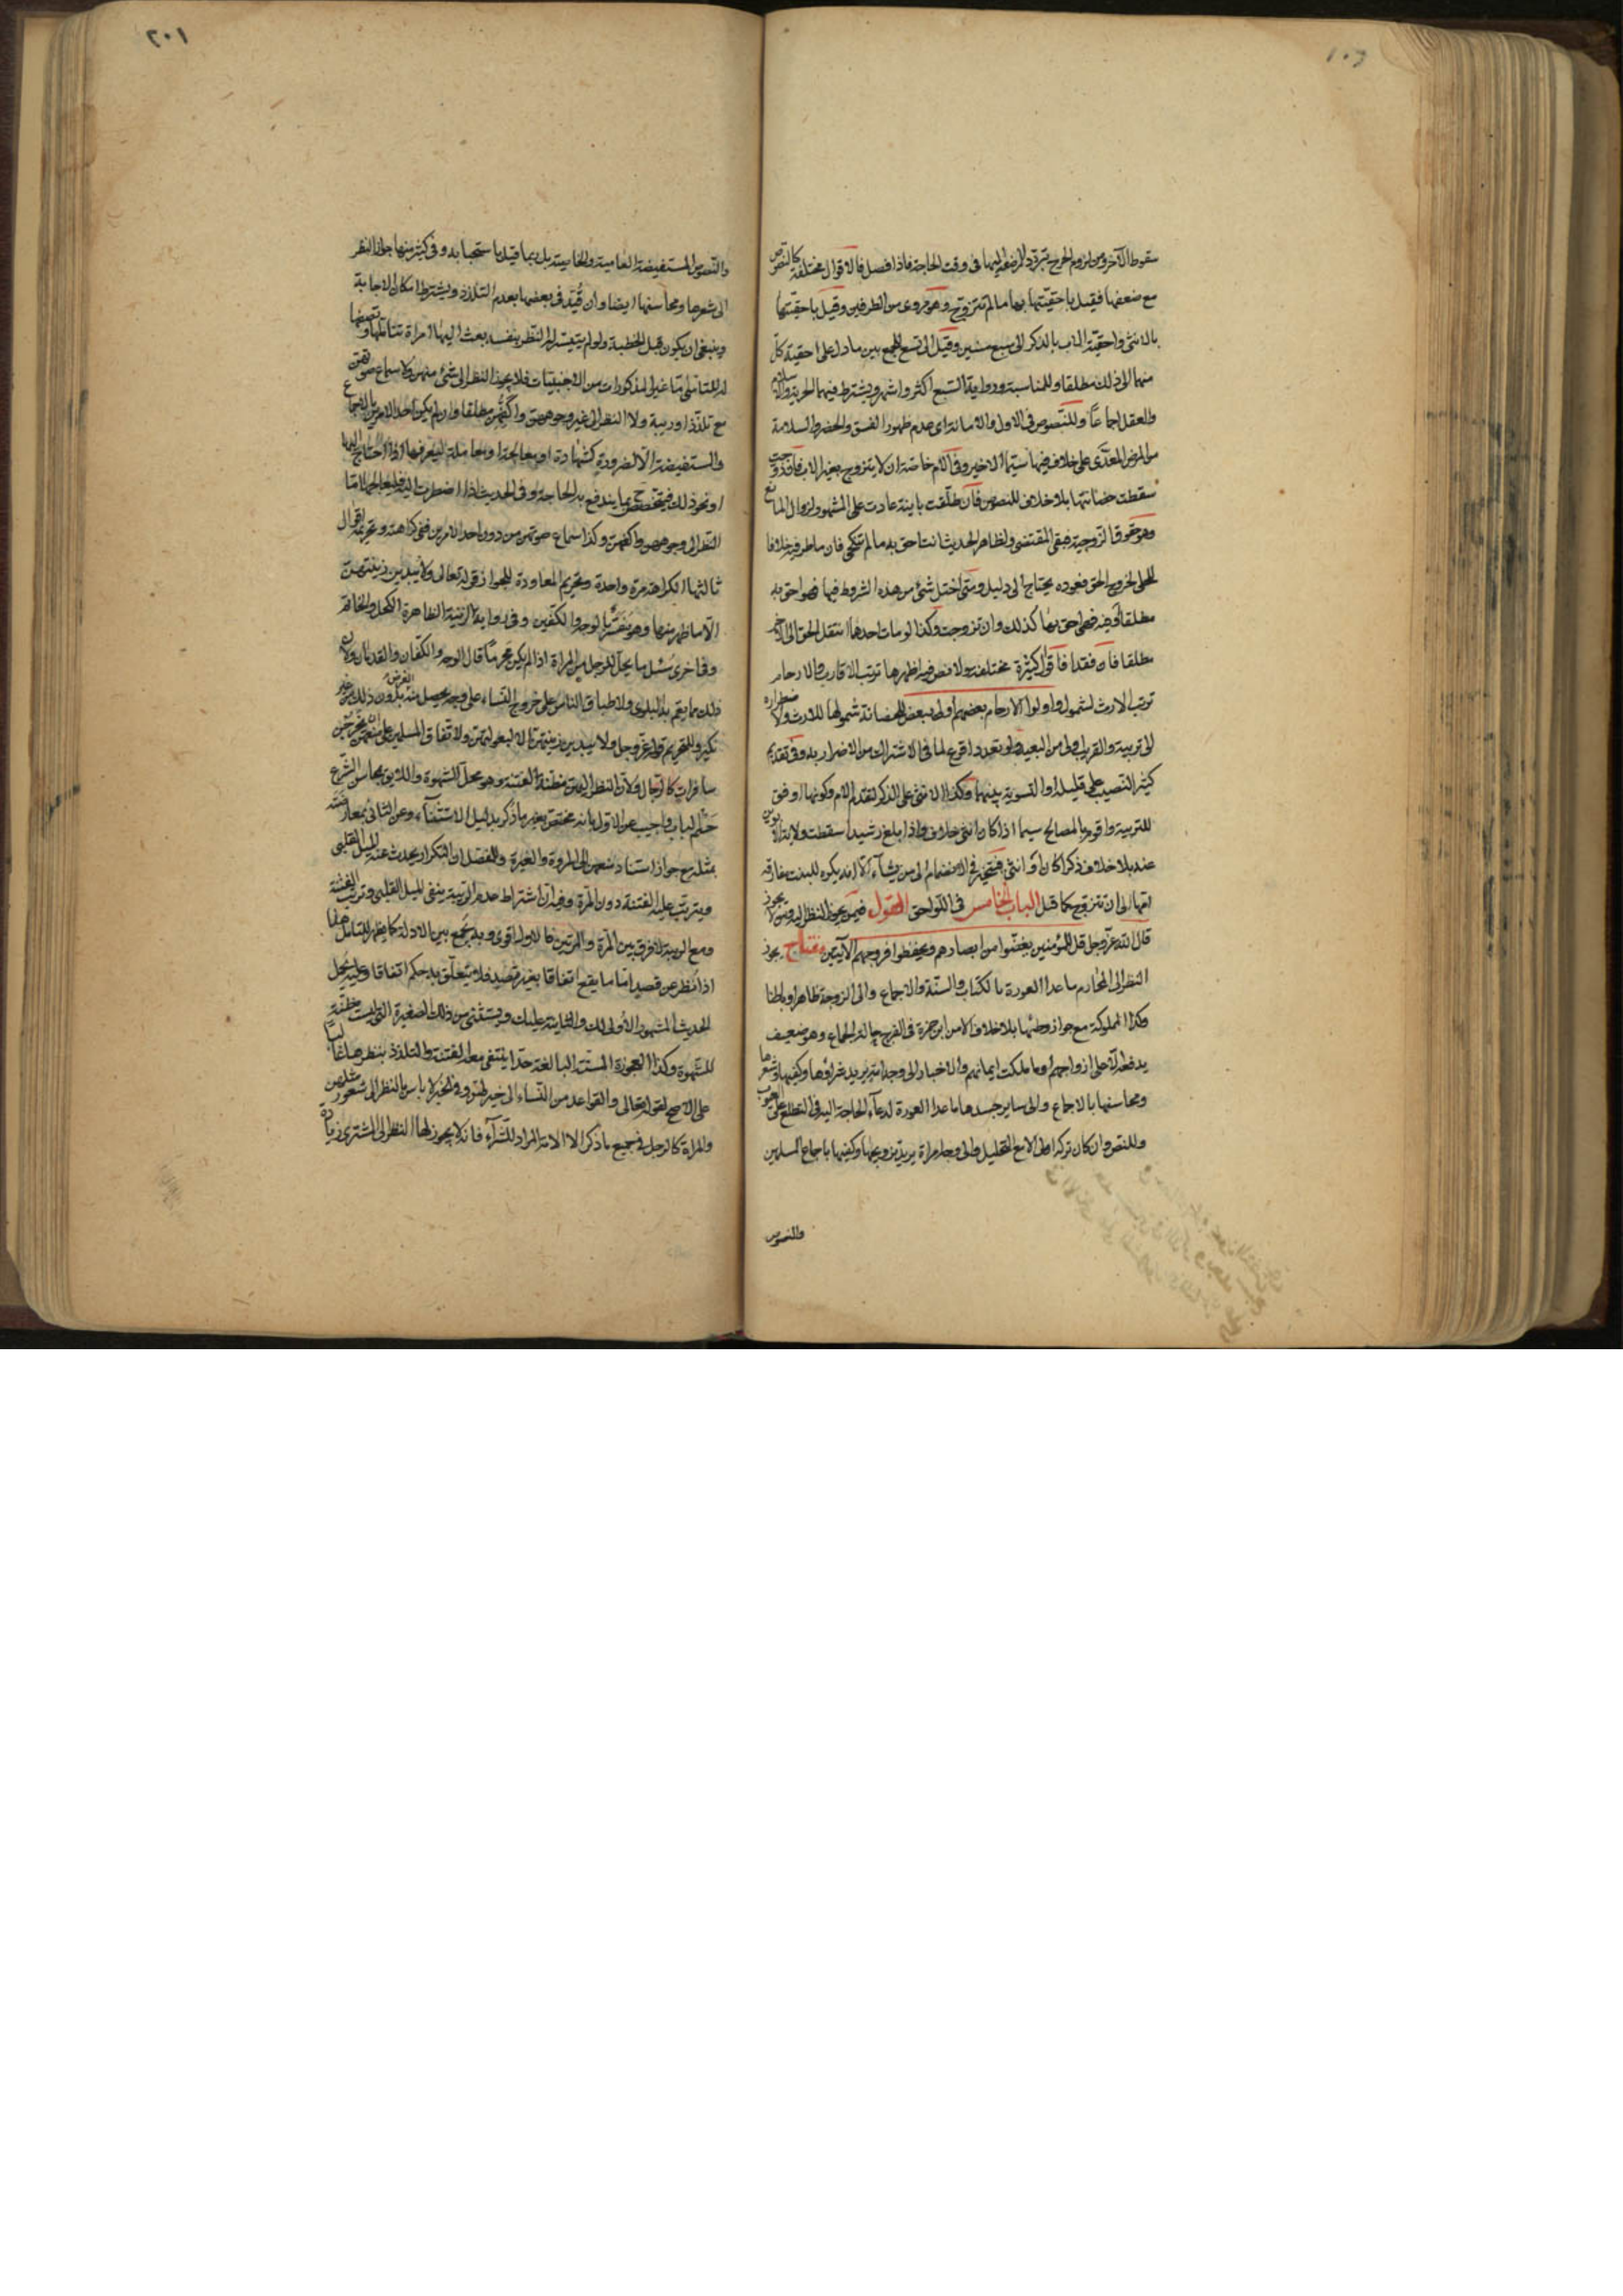 سقوط الآخر ومن لزوم الحرج بتردد المرضعة اليها فى وقت الحاجة فاذا فصل فالاقوال مختلفة كالنصوص
مع ضعفها فقيل باحقيتها بها ما لم تتزوج وهو مروى من الطرفين وقيل باحقيتها
بالانثى واحقية الاب بالذكر الى سبع سنين وقيل الى تسع للجمع بين ما دل على احقية كل
منهما الى ذلك مطلقا وللمناسبة ورواية السبع اكثر واشهر ويشترط فيهما الحرية والاسلام
والعقل اجماعا وللنصوص فى الاول والامانة اى عدم ظهور الفسق والحضر والسلامة
من المرض المعدى على خلاف فيها سيما الاخير وفى الام خاصة ان لا يتزوج بغير الاب فان تزوجت
سقطت حضانتها بلا خلاف للنصوص فان طلقت باينة عادت على المشهور لزوال المانع
وهو حقوق الزوجية فبقى المقتضى ولظاهر الحديث انت احق به ما لم تنكحى فان ما ظرفية خلافا
للحلى لخروج الحق فعوده يحتاج الى دليل ومتى اختل شئ من هذه الشروط فيها فهو احق به
مطلقا او فيه فهى احق بها كذلك وان تزوجت وكذا لو مات احدهما انتقل الحق الى الآخر
مطلقا فان فقدا فاقوال كثيرة مختلفة ولا نص فيه اظهرها ترتب الاقارب والارحام
ترتب الارث لشمول واولوا الارحام بعضهم اولى ببعض للحضانة شمولها للارث ولاضطراره
الى تربية والقريب اولى من البعيد ولو تعدد اقرع لما فى الاشتراك من الاضرار به وفى تقديم
كثير النصيب على قليله او التسوية بينهما وكذا الانثى على الذكر لتقدم الام وكونها اوفق
للتربية واقوم بالمصالح سيما اذا كان انثى خلاف واذا بلغ رشيدا سقطت ولاية الابوين
عنه بلا خلاف ذكرا كان او انثى فتخير فى الانضمام الى من يشاء الا انه يكره للبنت مفارقة
امها الى ان تتزوج كما قيل الباب الخامس فى اللواحق القول فيمن يجوز النظر اليه ومن لا يجوز
قال الله عز وجل قل للمؤمنين يغضوا من ابصارهم ويحفظوا فروجهم الآيتين مفتاح يجوز
النظر الى المحارم ما عدا العورة بالكتاب والسنة والاجماع والى الزوجة ظاهرا وباطنا
وكذا المملوكة مع جواز وطئها بلا خلاف الا من ابن حمزة فى الفرج حالة الجماع وهو ضعيف
يدفعه الا على ازواجهم او ما ملكت ايمانهم والاخبار والى وجه امة يريد شراؤها وكفيها وشعرها
ومحاسنها بالاجماع والى ساير جسدها ما عدا العورة لدعاء الحاجة اليه فى التطلع على العيوب
وللنص وان كان تركه اولى الا مع التحليل والى وجه امراة يريد تزويجها وكفيها باجماع المسلمين
والنصوص
٢٠١
والنصوص المستفيضة العامية والخاصية بل ربما قيل باستحبابه وفى كثير منها جواز النظر
الى شعرها ومحاسنها ايضا وان قيد فى بعضها بعدم التلذذ ويشترط امكان الاجابة
وينبغى ان يكون قبل الخطبة ولو لم يتيسر له النظر بنفسه بعث اليها امراة تتاملها وتصفها
له للتاسى اما غير المذكورات من الاجنبيات فلا يجوز النظر الى شئ منهن ولا سماع صوتهن
مع تلذذ او ريبة ولا النظر الى غير وجوههن واكفهن مطلقا وان لم يكن احد الامرين بالاجماع
والمستفيضة الا لضرورة كشهادة او معالجة او معاملة ليعرفها اذا احتاج اليها
او نحو ذلك فيتخصص بما يندفع به الحاجة وفى الحديث اذا اضطرت اليه فليعالجها اما
النظر الى وجوههن واكفهن وكذا سماع صوتهن من دون احد الامرين ففى كراهته وتحريمه اقوال
ثالثها الكراهة مرة واحدة وتحريم المعاودة للجواز قوله تعالى ولا يبدين زينتهن
الا ما ظهر منها وهو مفسر بالوجه والكفين وفى رواية الزينة الظاهرة الكحل والخاتم
وفى اخرى سئل ما يحل للرجل من المراة اذا لم يكن محرما قال الوجه والكفان والقدمان ولان
ذلك مما يعم به البلوى ولاطباق الناس على خروج النساء على وجه يحصل منه بدون ذلك من غير
نكير وللتحريم قوله عز وجل ولا يبدين زينتهن الا لبعولتهن ولاتفاق المسلمين على منعهن ان يخرجن
سافرات كالرجال ولان النظر اليهن مظنة الفتنة وهو محل الشهوة واللايق بمحاسن الشرع
حسم الباب واجيب عن الاول بانه مختص بغير ما ذكر بدليل الاستثناء وعن الثانى بمعارضته
بمثله مع جواز استناد منعهن الى المروة والغيرة وللمفصل ان التكرار يحدث عنه الميل القلبى
ويترتب عليه الفتنة دون المرة وفيه ان اشتراط عدم الريبة ينفى الميل القلبى وترتب الفتنة
ومع الريبة لا فرق بين المرة والمرتين فالاول اقوى وبه يجمع بين الادلة كما يظهر للمتامل هذا
اذا نظر عن قصد اما ما يقع اتفاقا بغير قصد فلا يتعلق به حكم اتفاقا وعليه يحمل
الحديث المشهور الاولى لك والثانية عليك ويستثنى من ذلك الصغيرة التى ليست مظنة
للشهوة وكذا العجوزة المسنة البالغة حدا ينتفى معه الفتنة والتلذذ بنظرها غالبا
على الاصح لقوله تعالى والقواعد من النساء الى خير لهن وفى الخبر لا باس بالنظر الى شعور مثلهن
والمراة كالرجل فى جميع ما ذكر الا الامة المراد للشراء فانه لا يجوز لها النظر الى المشترى زيادة